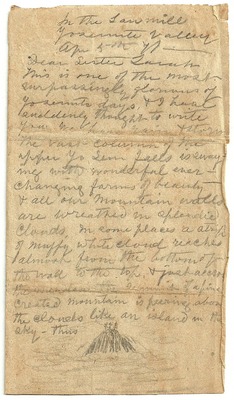 In the Sawmill
Yosemite Valley
Apr 5th
Dear Sister Sarah
This is one of the most
surpassingly glorious of
Yosemite days & I have
suddenly thought to write
you
the vast column of the
upper Yo Sem falls is sway
ing with wonderful ever
changing forms of beauty
& all our mountain walls
are wreathed in splendid
clouds. In some places a strip
of muffy white cloud reaches
almost from the bottom of
the wall to the top, & just across
the
crested mountain is peering above
the clouds like an island in the
sky - thus